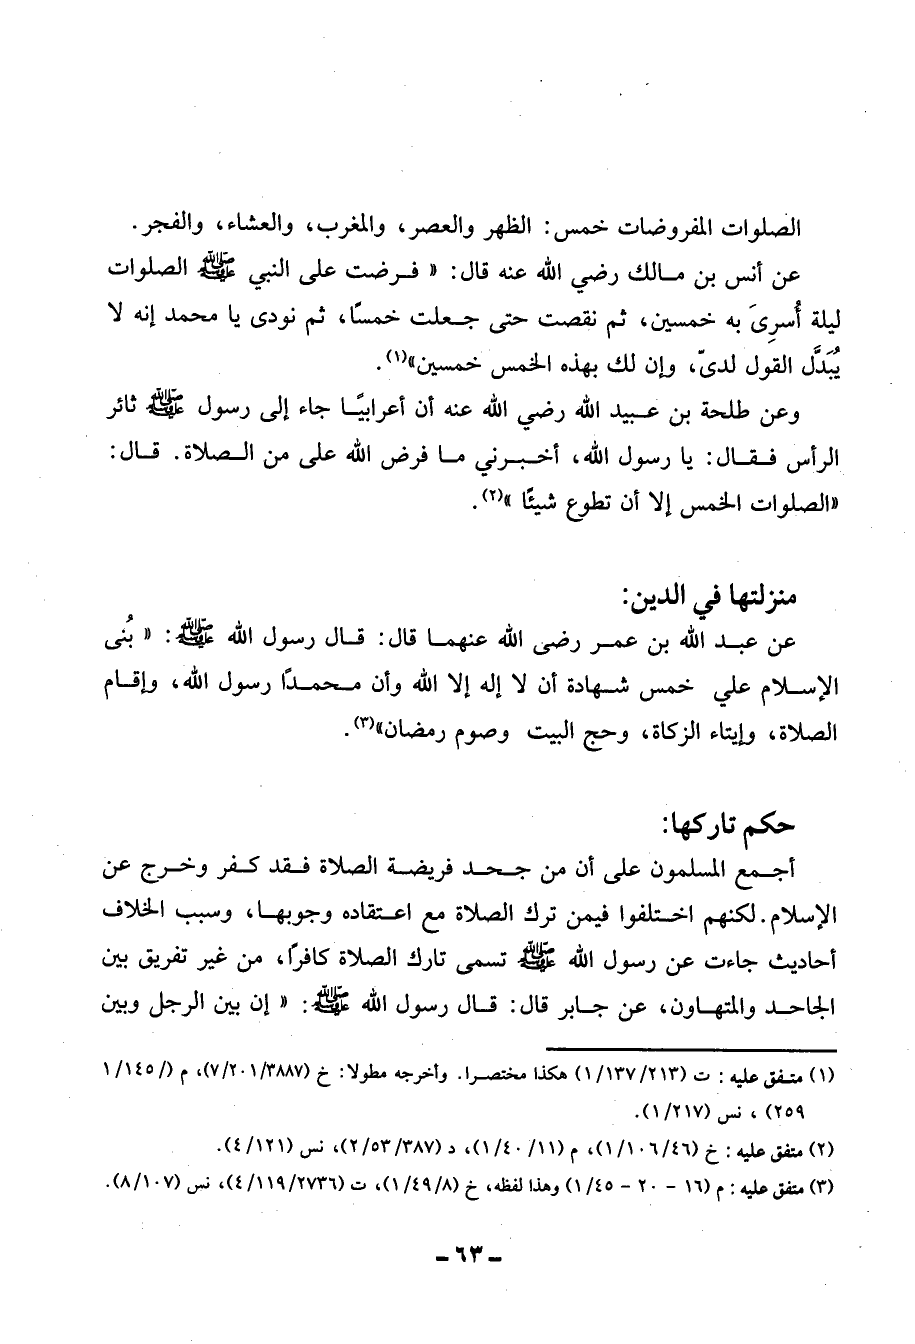 الصلوات المفروضات خمس: الظهر والعصر، والمغرب، والعشاء، والفجر.
عن أنس بن مالك رضي الله عنه قال: « فرضت على النبي ﷺ الصلوات
ليلة أُسرِىَ به خمسين، ثم نقصت حتى جعلت خمسًا، ثم نودى يا محمد إنه لا
يُبَدَّل القول لدىّ، وإن لك بهذه الخمس خمسين»(١).
وعن طلحة بن عبيد الله رضي الله عنه أن أعرابيًا جاء إلى رسول ﷺ ثائر
الرأس فقال: يا رسول الله، أخبرني ما فرض الله على من الصلاة. قال:
«الصلوات الخمس إلا أن تطوع شيئًا »(٢).
منزلتها في الدين:
عن عبد الله بن عمر رضى الله عنهما قال: قال رسول الله ﷺ: « بُنى
الإسلام علي خمس شهادة أن لا إله إلا الله وأن محمدًا رسول الله، وإقام
الصلاة، وإيتاء الزكاة، وحج البيت وصوم رمضان»(٣).
حكم تاركها:
أجمع المسلمون على أن من جحد فريضة الصلاة فقد كفر وخرج عن
الإسلام.لكنهم اختلفوا فيمن ترك الصلاة مع اعتقاده وجوبها، وسبب الخلاف
أحاديث جاءت عن رسول الله ﷺ تسمى تارك الصلاة كافرًا، من غير تفريق بين
الجاحد والمتهاون، عن جابر قال: قال رسول الله ﷺ: « إن بين الرجل وبين
(١) متفق عليه : ت (١/١٣٧/٢١٣) هكذا مختصرا. وأخرجه مطولا: خ (٧/٢٠١/٣٨٨٧)، م (/١/١٤٥
٢٥٩) ، نس (١/٢١٧).
(٢) متفق عليه : خ (١/١٠٦/٤٦)، م (١/٤٠/١١)، د (٢/٥٣/٣٨٧)، نس (٤/١٢١).
(٣) متفق عليه : م (١٦ - ٢٠ - ١/٤٥) وهذا لفظه، خ (١/٤٩/٨)، ت (٤/١١٩/٢٧٣٦)، نس (٨/١٠٧).
- ٦٣ -